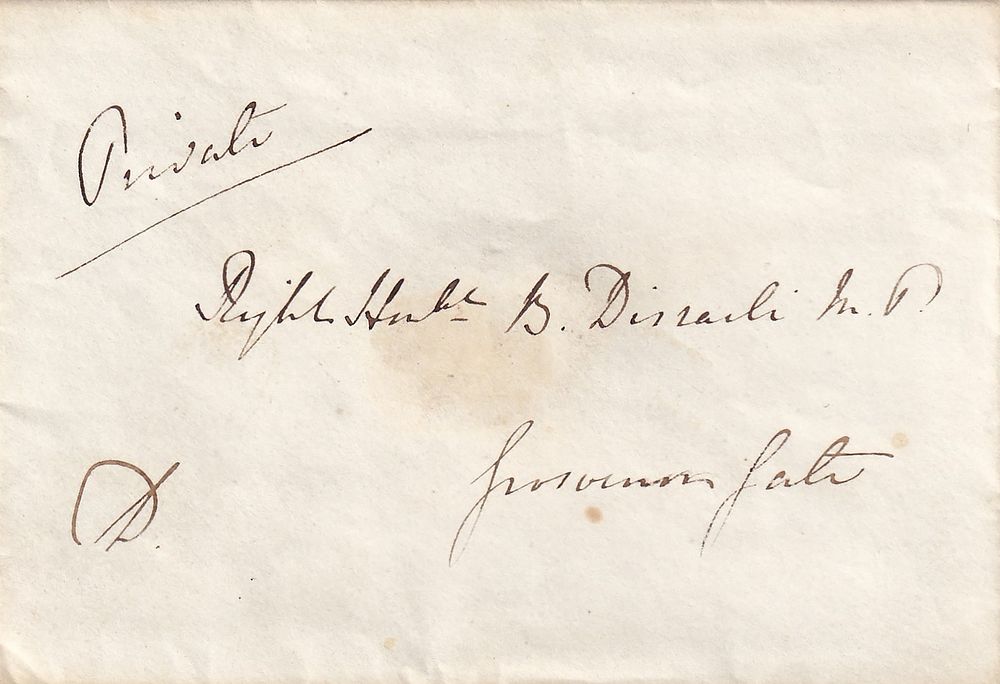 Private
Right Honble B. Disraeli M.P.
Grosvenor Gate
D.